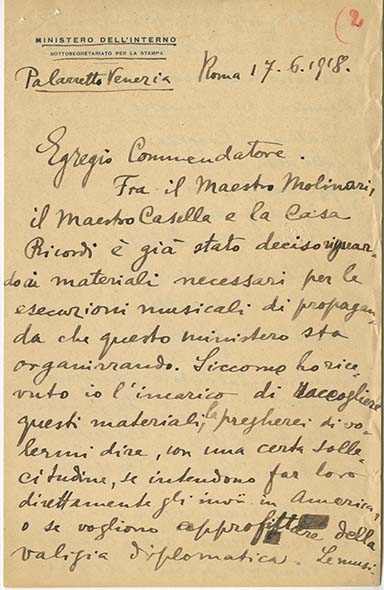 2
MINISTERO DELL'INTERNO
SOTTOSEGRETARIATO PER LA STAMPA
Palazzetto Venezia Roma 17.6.1918.
Egregio Commendatore.
Fra il Maestro Molinari,
il Maestro Casella e la Casa
Ricordi è già stato deciso riguar-
do ai materiali necessari per le
esecuzioni musicali di propagan-
da che questo ministero sta
organizzando. Siccome ho rice-
vuto io l'incarico di raccogliere
questi materiali, la pregherei di vo-
lermi dire, con una certa solle-
citudine, se intendono far loro
direttamente gli invii in America,
o se vogliono approfittare della
valigia diplomatica. Le musi-